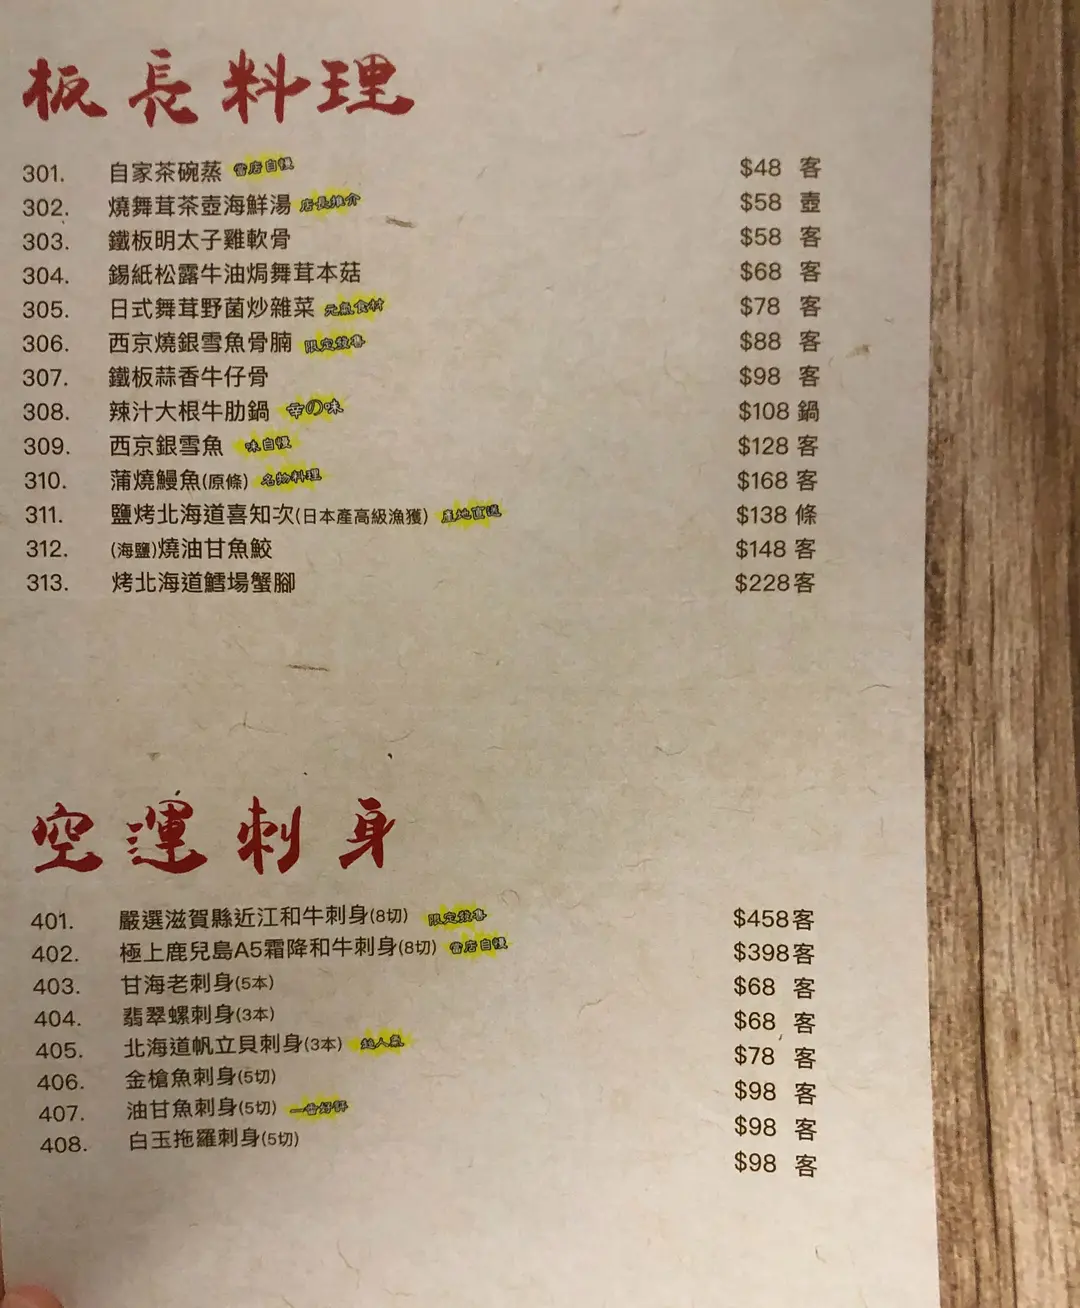 板長料理
301. 自家茶碗蒸 當店自慢 $48 客
302. 燒舞茸茶壺海鮮湯 店長推介 $58 壺
303. 鐵板明太子雞軟骨 $58 客
304. 錫紙松露牛油焗舞茸本菇 $68 客
305. 日式舞茸野菌炒雜菜 元氣食材 $78 客
306. 西京燒銀雪魚骨腩 限定發售 $88 客
307. 鐵板蒜香牛仔骨 $98 客
308. 辣汁大根牛肋鍋 辛の味 $108 鍋
309. 西京銀雪魚 味自慢 $128 客
310. 蒲燒鰻魚(原條) 名物料理 $168 客
311. 鹽烤北海道喜知次(日本產高級漁獲) 產地直送 $138 條
312. (海鹽)燒油甘魚鮫 $148 客
313. 烤北海道鱈場蟹腳 $228客
空運刺身
401. 嚴選滋賀縣近江和牛刺身(8切) 限定發售 $458客
402. 極上鹿兒島A5霜降和牛刺身(8切) 當店自慢 $398客
403. 甘海老刺身(5本) $68 客
404. 翡翠螺刺身(3本) $68 客
405. 北海道帆立貝刺身(3本) 超人氣 $78 客
406. 金槍魚刺身(5切) $98 客
407. 油甘魚刺身(5切) 一番好評 $98 客
408. 白玉拖羅刺身(5切) $98 客